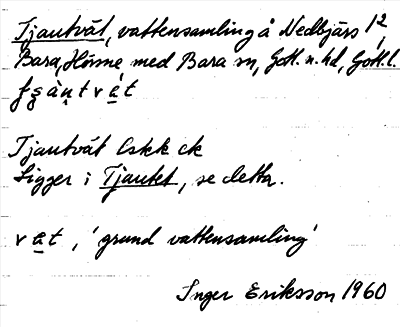 Tjautvät, vattensamling å Nedbjärs 1²,
Bara, Hörsne med Bara sn, Gotl. n. hd, Gotl. l.
Tjautvät Eskk ck
Ligger i Tjautet, se detta.
vät, 'grund vattensamling'
Inger Eriksson 1960